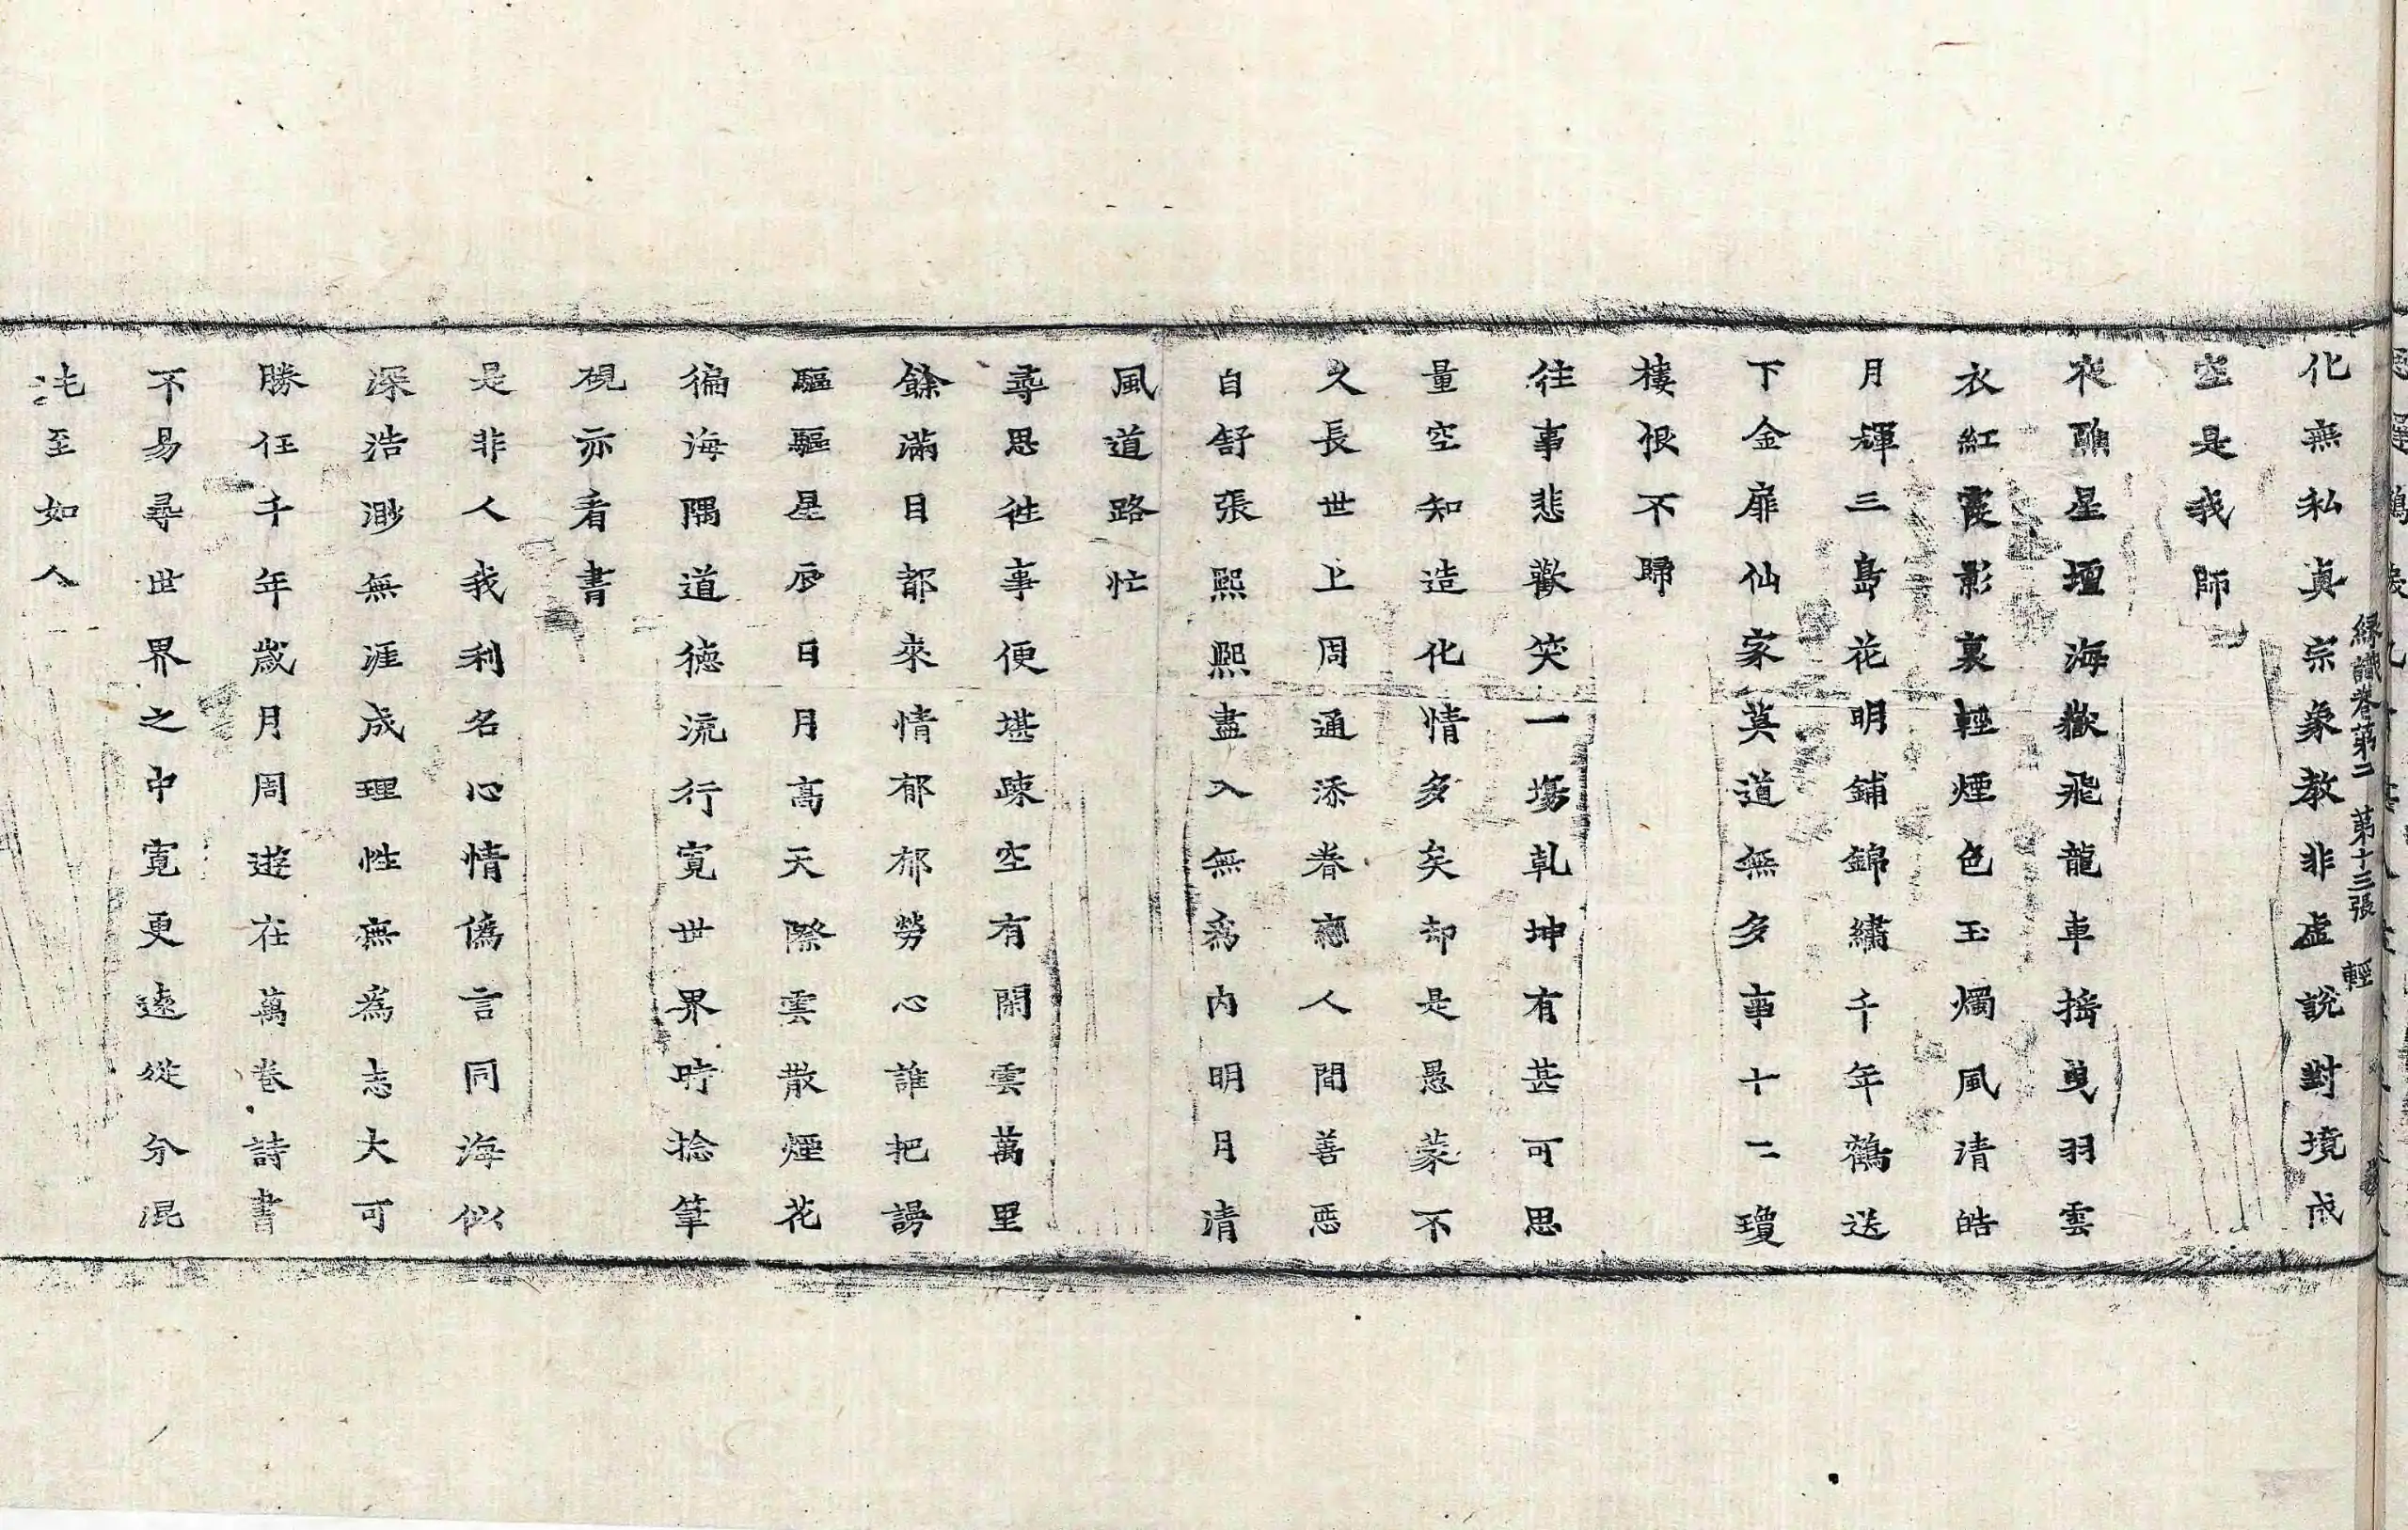 化無私真宗象教非虛說對境成
空是我師
夜醮星壇海嶽飛龍車搖曳羽雲
衣紅霞影裏輕煙色玉燭風清皓
月輝三島花明鋪錦繡千年鶴送
下金扉仙家莫道無多事十二瓊
樓恨不歸
往事悲歡笑一場乹坤有甚可思
量空知造化情多矣却是愚蒙不
久長世上周通添眷戀人間善惡
自舒張熙熙盡入無爲内明月清
風道路忙
尋思往事便堪踈空有閑雲萬里
餘滿目都來情郁郁勞心誰把謗
驅驅星辰日月高天際雲散煙花
徧海隅道德流行寬世界時捻筆
硯亦看書
是非人我利名心情僞言同海似
深浩渺無涯成理性無爲志大可
勝任千年歲月周遊在萬卷詩書
不易尋世界之中寬更遠從分混
沌至如人
緣識卷第二 第十三張 輕